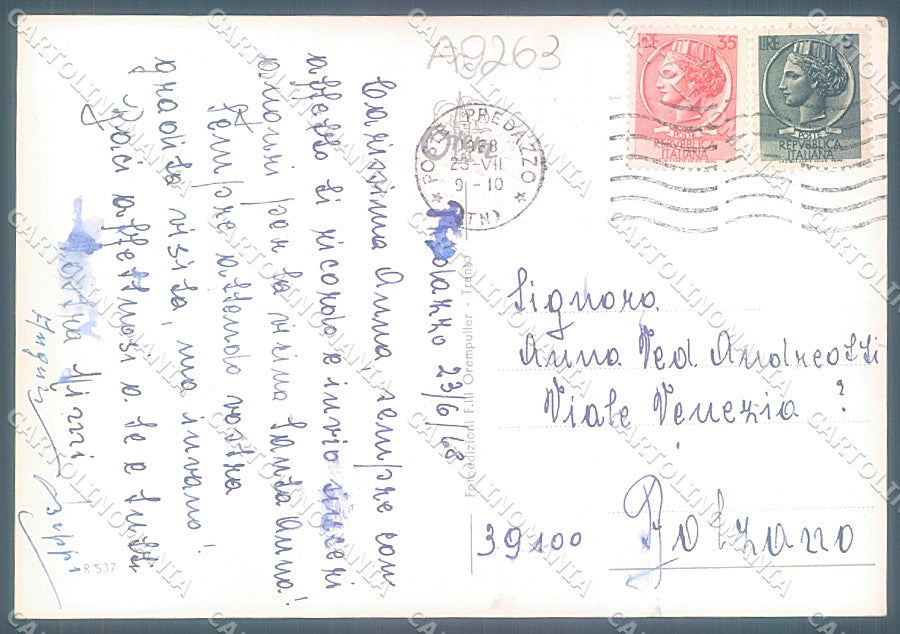 A9263
LIRE 35
POSTE
REPVBBLICA
ITALIANA
LIRE 15
POSTE
REPVBBLICA
ITALIANA
POSTE PREDAZZO
1968
23-VII
9-10
(TN)
23/6/68
Carissima Anna, sempre con
affetto ti ricordo e invio sinceri
auguri per la vicina Santa Anna!
Sempre attendo vostra
gradita visita, ma invano!
Baci affettuosi a te e tutti
vostra Mizzi
Signora
Anna Ved. Andreotti
Viale Venezia ?
39100 Bolzano
Fotoedizioni F.lli Orempuller - Trento
R 537
CARTOLINOMANIA